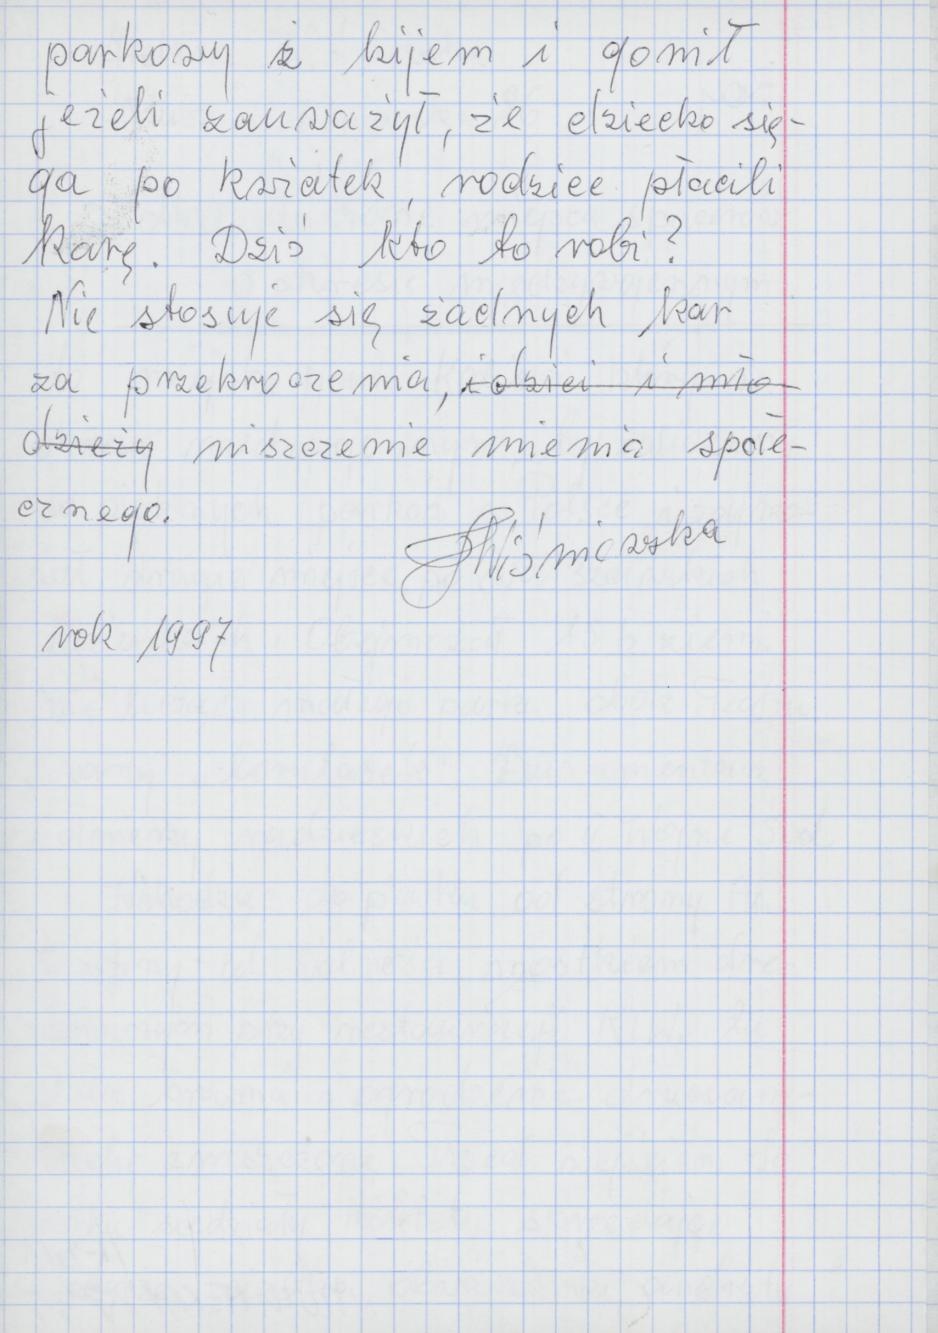 parkowy z kijem i gonił
jeżeli zauważył, że dziecko się-
ga po kwiatek, rodzice płacili
karę. Dziś kto to robi?
Nie stosuje się żadnych kar
za przekroczenia, i dzieci i mło-
dzieży niszczenie mienia społe-
cznego.
Wiśniewska
rok 1997